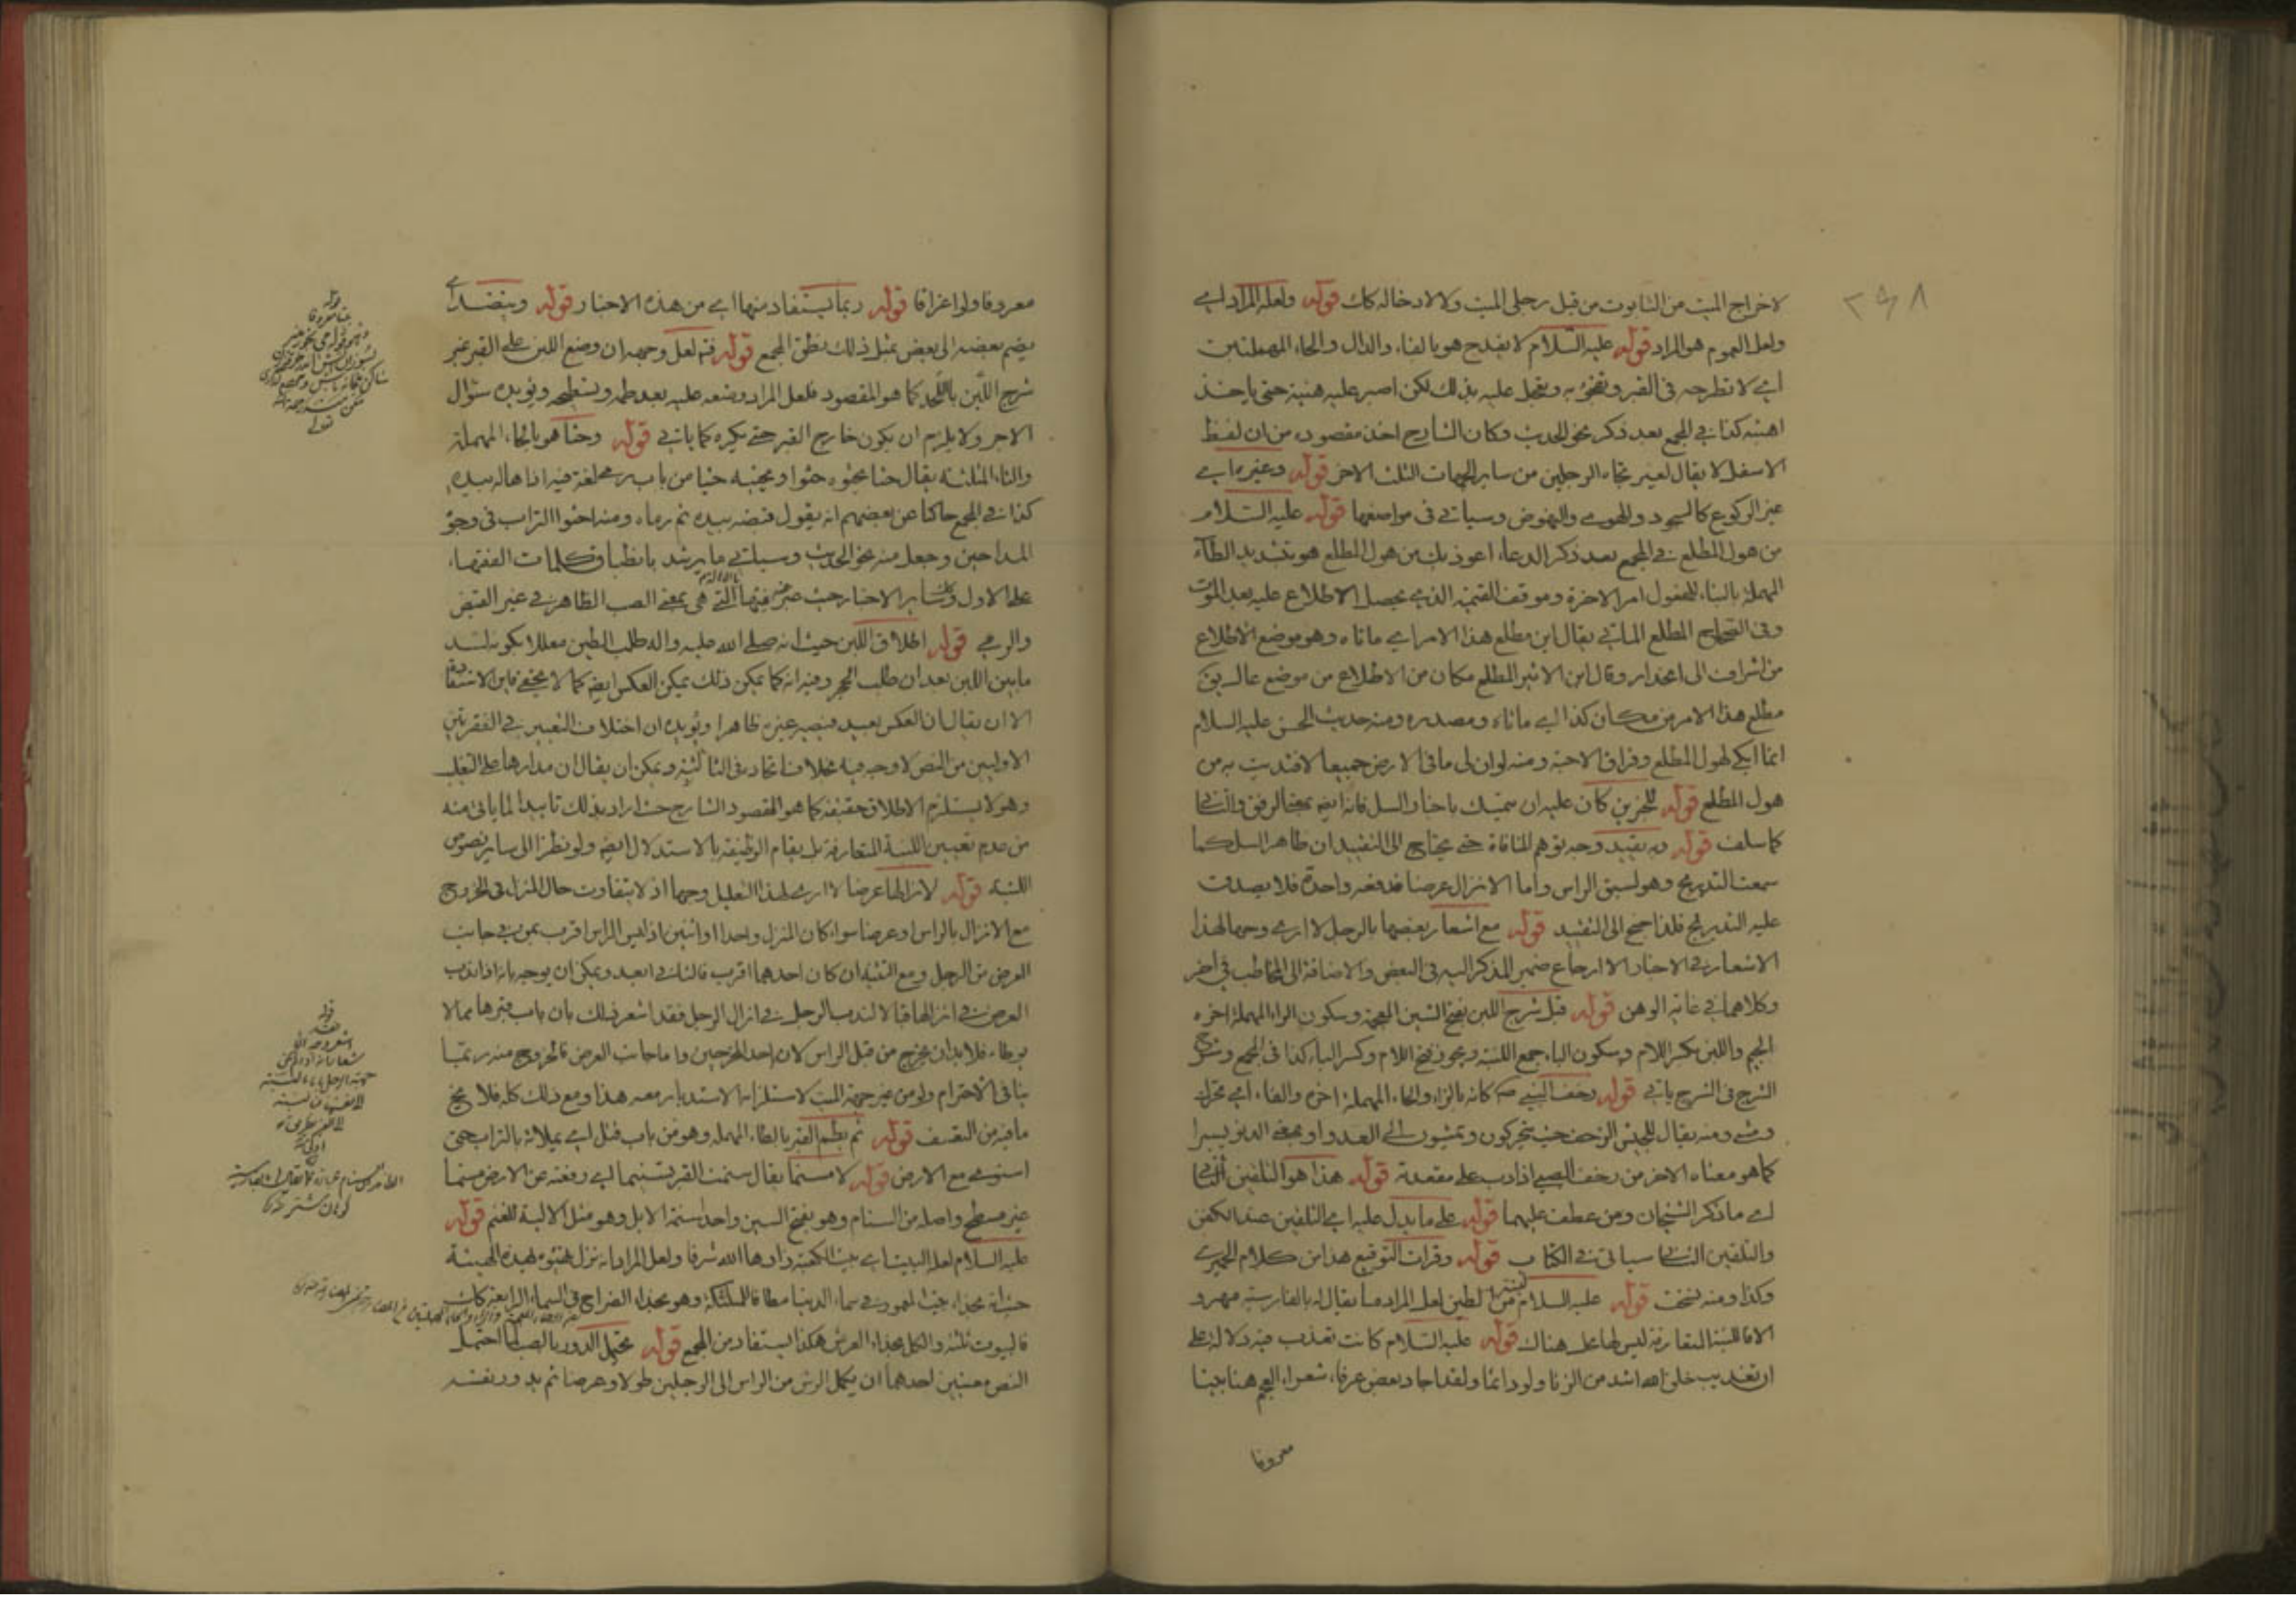 ٢٦٨
لاخراج الميت من التابوت من قبل رجلى الميت ولا لادخاله كك قوله ولعله المراد اى
ولعل العموم هو المراد قوله عليه السلام لا تفدح هو بالفاء والدال والحاء المهملتين
اى لا تطرحه فى القبر و به وتعجل عليه بذلك لكن اصبر عليه هنيئة حتى ياخذ
اهبته كذا فى المجمع بعد ذكر نحو الحديث وكان الشارح اخذ مقصوده من ان لفظ
الاسفل لا يقال لغير تجاه الرجلين من ساير الجهات الثلث الاخر قوله وغيره اى
غير الركوع كالسجود والهوى والنهوض وسياتى فى مواضعها قوله عليه السلام
من هول المطلع فى المجمع بعد ذكر الدعاء اعوذ بك من هول المطلع هو بتشديد الطاء
المهملة بالبناء للمفعول امر الاخرة وموقف القيمة الذى يحصل الاطلاع عليه بعد الموت
وفى الصحاح المطلع الماتى يقال اين مطلع هذا الامر اى ماتاه وهو موضع الاطلاع
من اشراف الى انحدار وقال ابن الاثير المطلع مكان من الاطلاع من موضع عال يق
مطلع هذا الامر من مكان كذا اى ماتاه ومصدره ومنه حديث الحسن عليه السلام
انما ابكى لهول المطلع وفراق الاحبة ومنه لو ان لى ما فى الارض جميعا لافتديت به من
هول المطلع قوله للخبرين كان عليه ان يتمسك باخبار السل فانه ايضا بمعنى الرفق والتانى
كما سلف قوله وبه يقيد وجه توهم المنافاة حتى يحتاج الى التقييد ان ظاهر السل كما
سمعت التدريج وهو لسبق الراس واما الانزال عرضا فدفعه واحدة فلا يصدق
عليه التدريج فلذا احتج الى التقييد قوله مع اشعار بعضها بالرجل لا ارى وجها لهذا
الاشعار فى الاخبار الا ارجاع ضمير المذكر اليه فى البعض والاضافة الى المخاطب فى اخر
وكلاهما فى غاية الوهن قوله قبل شرج اللبن بفتح الشين المعجمة وسكون الراء المهملة اخره
الجيم واللبن بكسر اللام وسكون الباء جمع اللبنة ويجوز فتح اللام وكسر الباء كذا فى المجمع وشرح
الشرج فى الشرح ياتى قوله زحف النبى ص كانه بالزاء والحاء المهملة اخره والفاء اى تحرك
ومشى ومنه يقال للجيش الزحف حيث يتحركون ويمشون الى العدو او بمعنى الدنو يسيرا
كما هو معناه الاخر من زحف الصبى اذا دب على مقعدته قوله هذا هو التلقين الثانى
اى ما ذكر الشيخان ومن عطف عليهما قوله على ما يدل عليه اى التلقين عند الكفن
والتلقين الثانى سياتى فى الكتاب قوله وقرات التوقيع هذا من كلام الحميرى
وكذا ومنه نسخت قوله عليه السلام لبنة من الطين لعل المراد ما يقال له بالفارسية مهر و
الا فاللبنة المتعارفة ليس لها محل هناك قوله عليه السلام كانت تعذب فيه دلالة على
ان تعذيب خلق الله اشد من الزنا ولو دائما ولقد اجاد بعض عرفاء شعراء العجم هنا بيتا
معروفا
معروفا ولو اغراقا قوله ربما يستفاد منها اى من هذه الاخبار قوله وينضد اى
يضم بعضه الى بعض بمثل ذلك نطق المجمع قوله فتم لعل وجهه ان وضع اللبن على القبر غير
شرج اللبن باللحد كما هو المقصود فلعل المراد وضعه عليه بعد طمه وتسطيحه ويؤيده سؤال
الاجر ولا يلزم ان يكون خارج القبر حتى يكره كما ياتى قوله وحثا هو بالحاء المهملة
والثاء المثلثة يقال حثا يحثوه حثوا ويحثيه حثيا من باب رمى لغة فيه اذا هاله بيده
كذا فى المجمع حاكيا عن بعضهم انه يقول قبضه بيده ثم رماه ومنه احثوا التراب فى وجوه
المداحين وجعل منه نحو الحديث وسياتى ما يرشد بانطباق كلمات الفقهاء
على الاول وساير الاخبار حيث عبر فيها التى هى بمعنى الصب الظاهر فى غير القبض
والرمى قوله اطلاق اللبن حيث انه صلى الله عليه واله طلب الطين معللا بكونه لسد
ما بين اللبن بعد ان طلب الحجر وفيه انه كما يمكن ذلك يمكن العكس ايضا كما لا يخفى فاين الاستفادة
الا ان يقال ان العكس بعيد فيصير غيره ظاهرا ويؤيده ان اختلاف التعبير فى الفقرتين
الاوليين من النص لا وجه فيه بخلاف اتحاده فى الثالثة ويمكن ان يقال ان مدارها على التغليب
وهو لا يستلزم الاطلاق حقيقة كما هو المقصود الشارح حيث اراد بذلك تاييدا لما ياتى منه
من عدم تعيين اللبنة المتعارفة بل يقام الوظيفة بالاستدلال ايضا ولو نظرا الى ساير نصوص
اللبنة قوله لانزالها عرضا لا ارى لهذا التعليل وجها اذ لا يتفاوت حال المنزل فى الخروج
مع الانزال بالراس او عرضا سواء كان المنزل واحدا او اثنين اذ ليس الراس اقرب بمن فى جانب
العرض من الرجل ومع التثنية ان كان احدهما اقرب فالثانى ابعد ويمكن ان يوجه بانه اذا ندب
العرض فى انزالها قبالا لندب الرجل فى انزال الرجل فقد اشعر ذلك بان باب قبرها مما لا
يوطاء فلا بد ان يخرج من قبل الراس لانه احد المخرجين واما جانب العرض فالخروج منه ربما
ينافى الاحترام ولو من غير جهة الميت لاستلزامه الاستدبار معه هذا ومع ذلك كله فلا يخ
ما فيه من التعسف قوله ثم يطم القبر بالطاء المهملة وهو من باب قتل اى يملائه بالتراب حتى
استوى مع الارض قوله لا مسنما يقال سنمت القبر تسنيما اى رفعته عن الارض مسنما
غير مسطح واصله من السنام وهو بفتح السين واحد اسنمة الابل وهو مثل الالية للغنم قوله
عليه السلام لعله البيت اى بيت الكعبة زادها الله شرفا ولعل المراد انه نزل بهذه الهيئة
حيث انه بحذاء بيت المعمور فى سماء الدنيا مطافا للملئكة وهو بحذاء الضراح فى السماء الرابعة كان
فالبيوت ثلثة والكل بحذاء العرش هكذا يستفاد من المجمع قوله يحتمل الدور بالصب احتمل
النص معنيين احدهما ان يكمل الرش من الراس الى الرجلين طولا وعرضا ثم يدور بقسمة
قوله
بيتا معروفا
قوله